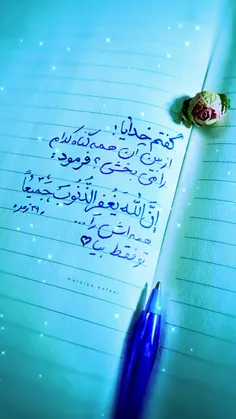 گفتم خدایا!
از بین آن همه گناه کدام
را می بخشی؟ فرمود:
إنَّ اللهَ یَغفِرُ الذُّنُوبَ جَمیعاً
همه اش را...
تو فقط بیا